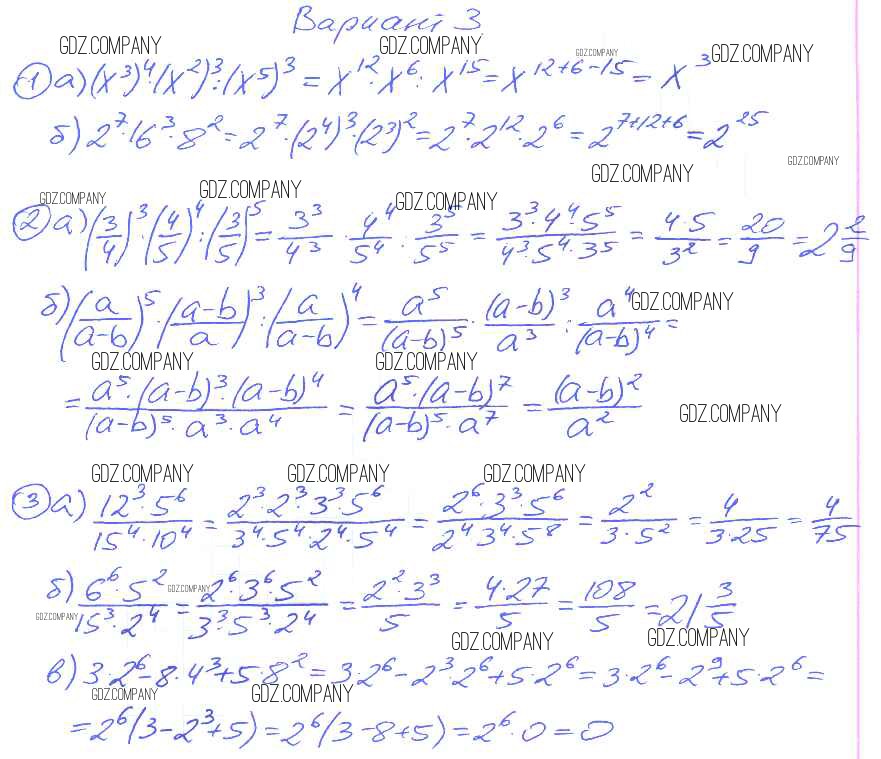 Вариант 3
GDZ.COMPANY GDZ.COMPANY GDZ.COMPANY GDZ.COMPANY
① а) (x³)⁴·(x²)³:(x⁵)³ = x¹²·x⁶:x¹⁵ = x¹²⁺⁶⁻¹⁵ = x³
б) 2⁷·16³·8² = 2⁷·(2⁴)³·(2³)² = 2⁷·2¹²·2⁶ = 2⁷⁺¹²⁺⁶ = 2²⁵
GDZ.COMPANY GDZ.COMPANY
GDZ.COMPANY GDZ.COMPANY GDZ.COMPANY
② а) (3/4)³·(4/5)⁴:(3/5)⁵ = 3³/4³ · 4⁴/5⁴ · 3⁵/5⁵ = 3³·4⁴·5⁵/4³·5⁴·3⁵ = 4·5/3² = 20/9 = 2 2/9
б) (a/(a-b))⁵·((a-b)/a)³:(a/(a-b))⁴ = a⁵/(a-b)⁵ · (a-b)³/a³ : a⁴/(a-b)⁴ =
GDZ.COMPANY
GDZ.COMPANY GDZ.COMPANY
= a⁵·(a-b)³·(a-b)⁴/(a-b)⁵·a³·a⁴ = a⁵·(a-b)⁷/(a-b)⁵·a⁷ = (a-b)²/a²
GDZ.COMPANY
GDZ.COMPANY GDZ.COMPANY GDZ.COMPANY
③ а) 12³·5⁶/15⁴·10⁴ = 2³·2³·3³·5⁶/3⁴·5⁴·2⁴·5⁴ = 2⁶·3³·5⁶/2⁴·3⁴·5⁸ = 2²/3·5² = 4/3·25 = 4/75
б) 6⁶·5²/15³·2⁴ = 2⁶·3⁶·5²/3³·5³·2⁴ = 2²·3³/5 = 4·27/5 = 108/5 = 21 3/5
GDZ.COMPANY GDZ.COMPANY
GDZ.COMPANY GDZ.COMPANY
в) 3·2⁶-8·4³+5·8² = 3·2⁶-2³·2⁶+5·2⁶ = 3·2⁶-2⁹+5·2⁶ =
GDZ.COMPANY GDZ.COMPANY
= 2⁶(3-2³+5) = 2⁶(3-8+5) = 2⁶·0 = 0